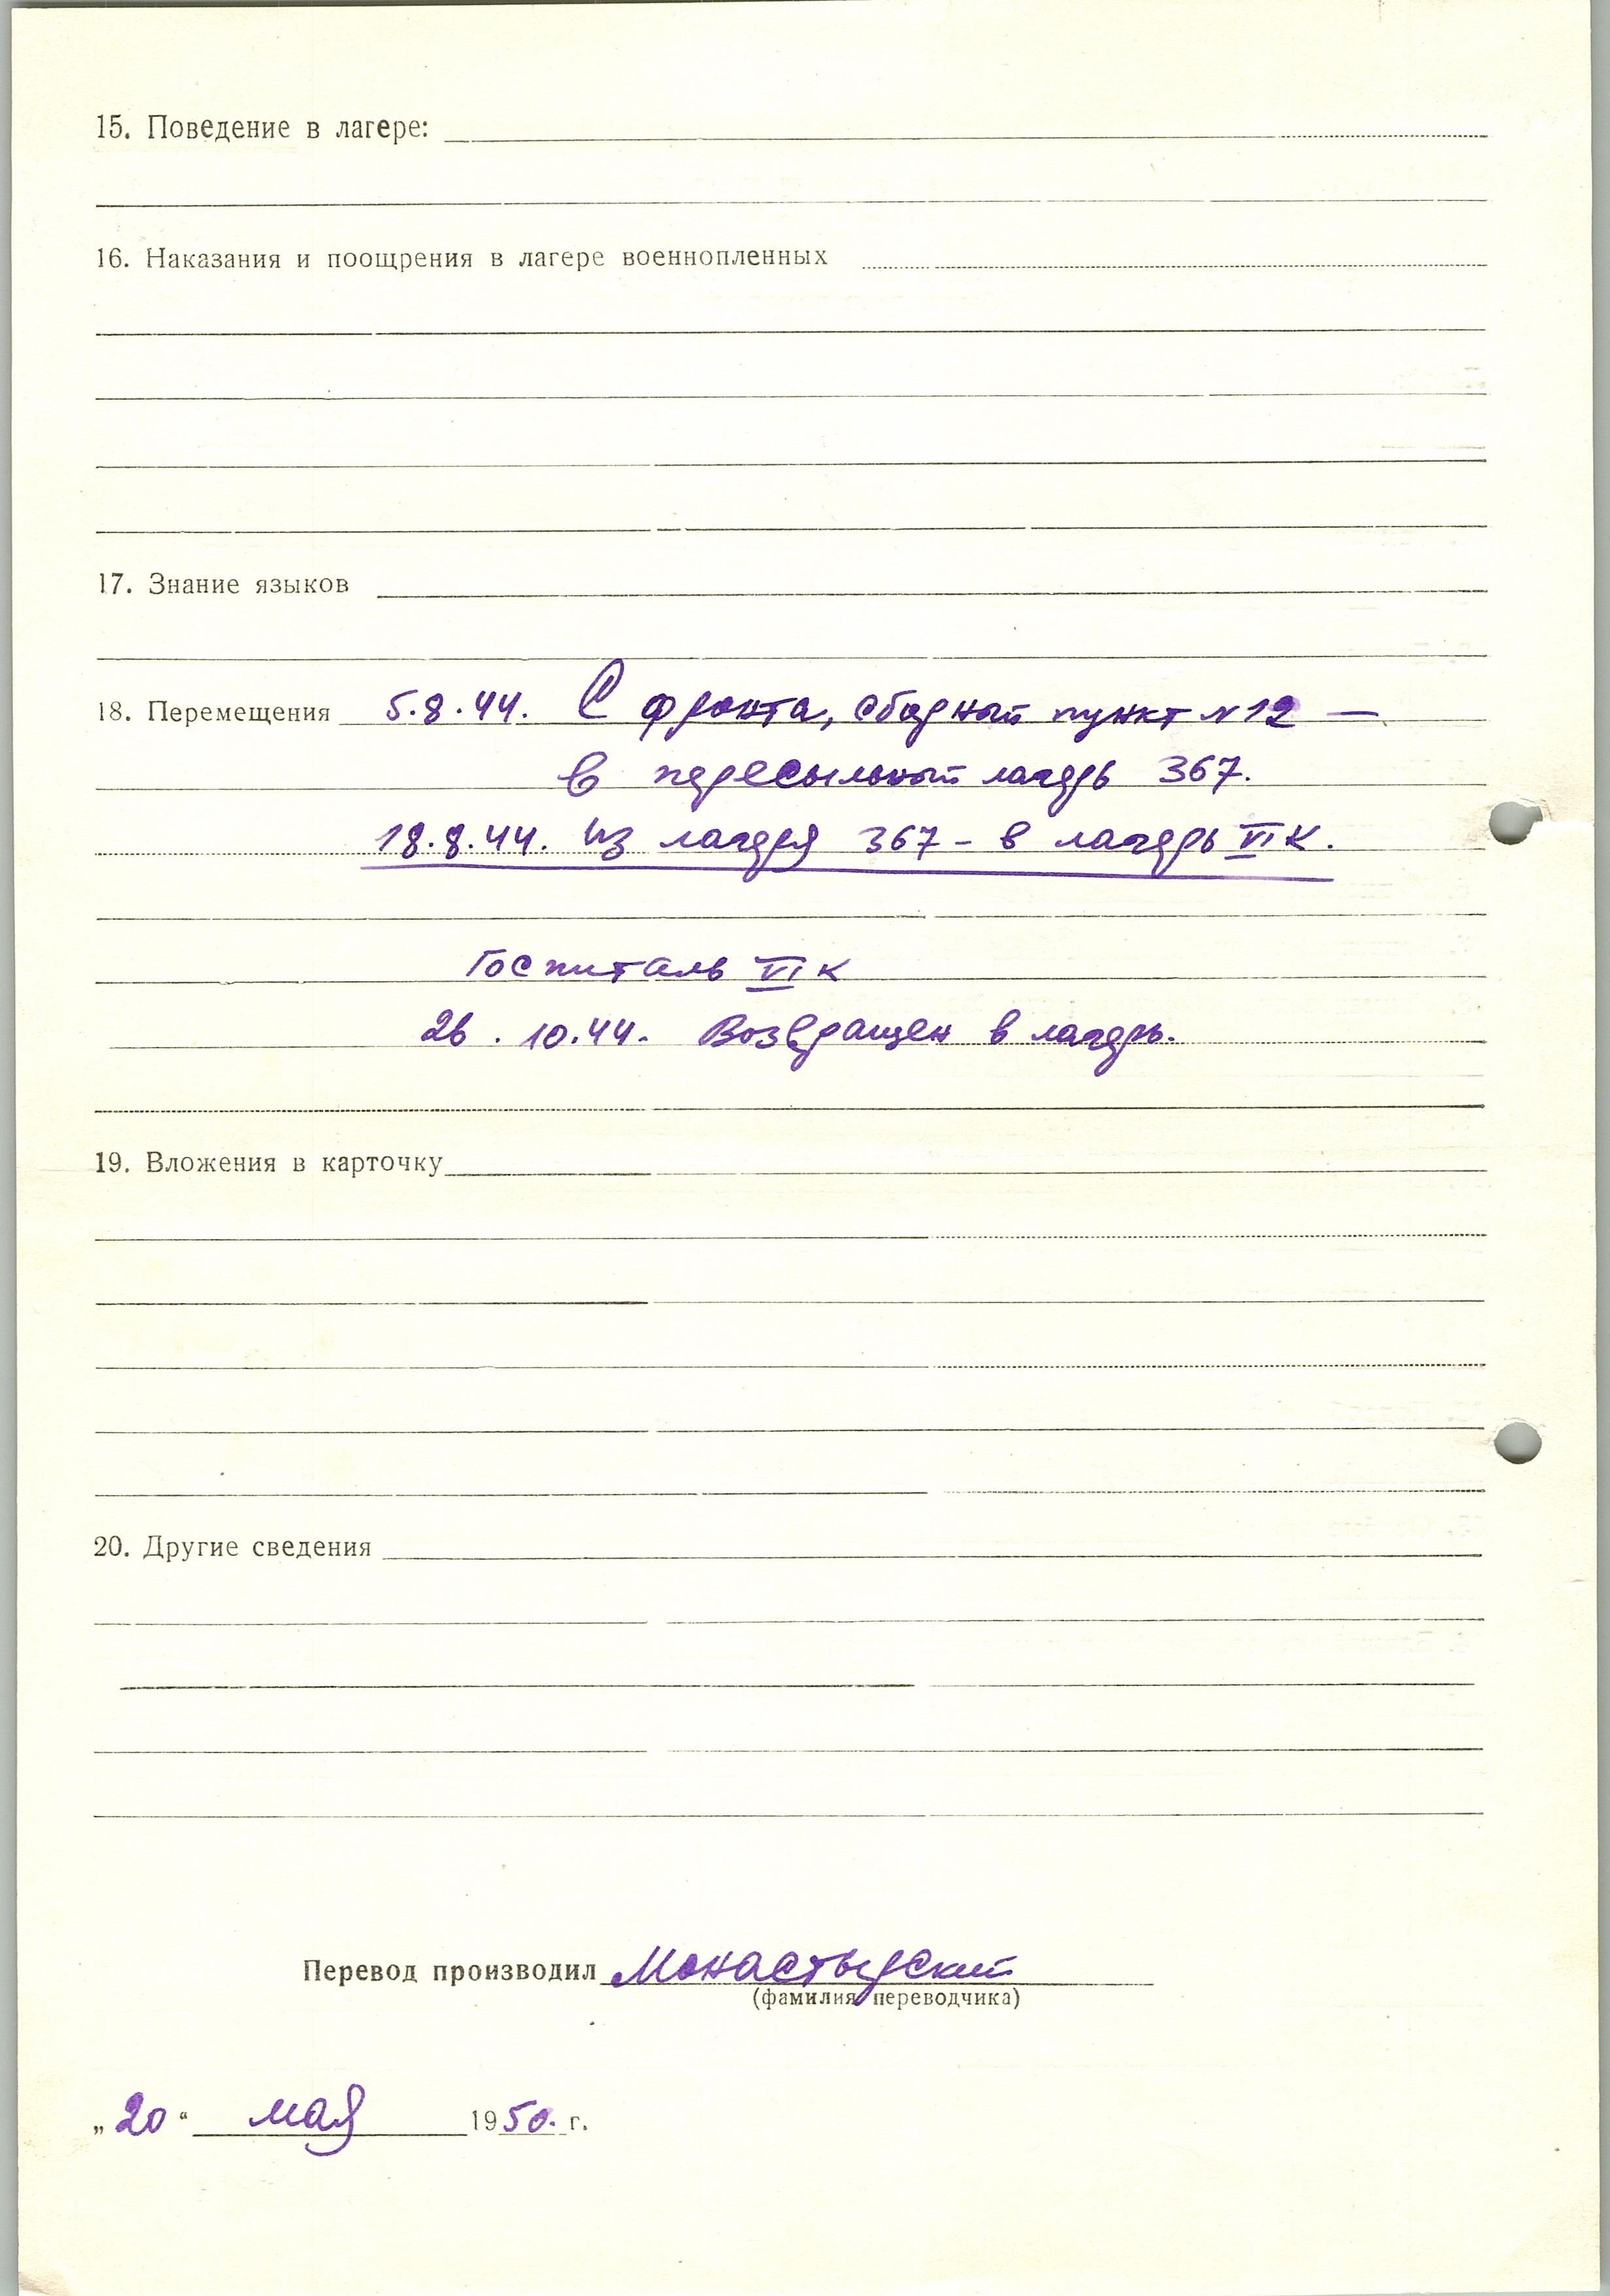 15. Поведение в лагере:
16. Наказания и поощрения в лагере военнопленных
17. Знание языков
18. Перемещения 5.8.44. С фронта, сборный пункт № 12 —
в пересыльный лагерь 367.
18.8.44. из лагеря 367 – в лагерь VI К.
Госпиталь VI К
26. 10.44. Возвращен в лагерь.
19. Вложения в карточку
20. Другие сведения
Перевод производил Монастырский
(фамилия переводчика)
„20“ мая 1950. г.